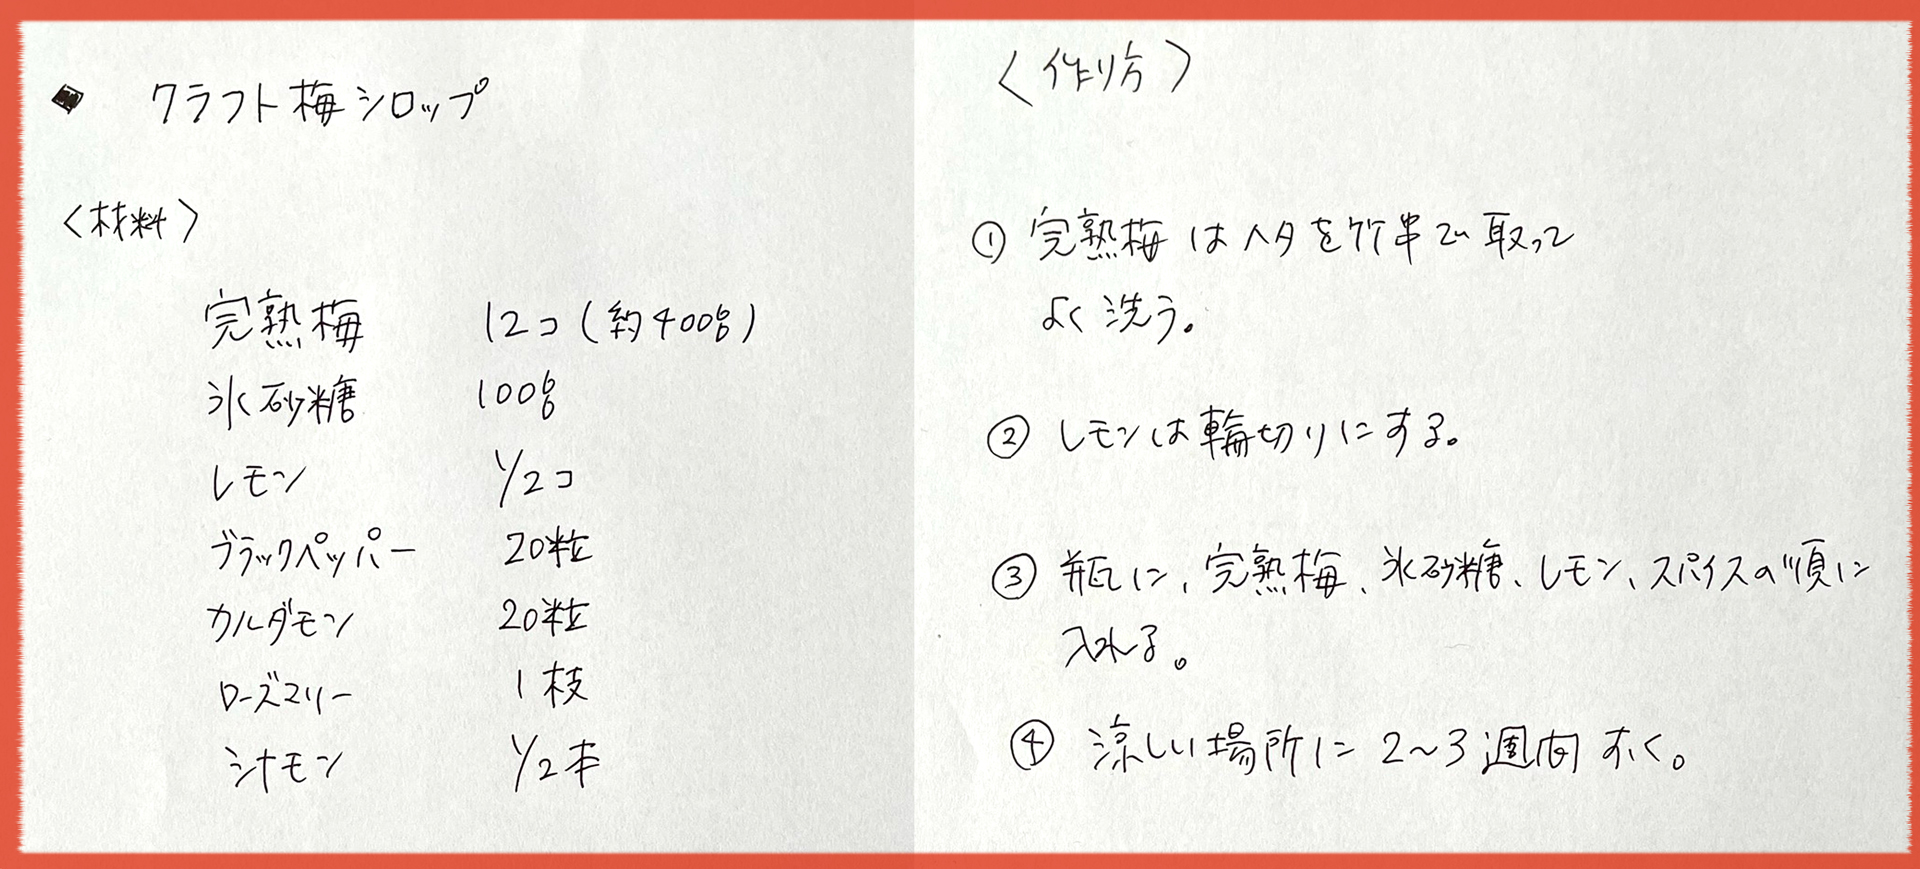 ◆ クラフト梅シロップ
〈材料〉
完熟梅 12コ(約400g)
氷砂糖 100g
レモン 1/2コ
ブラックペッパー 20粒
カルダモン 20粒
ローズマリー 1枝
シナモン 1/2本
〈作り方〉
① 完熟梅はヘタを竹串で取って
よく洗う。
② レモンは輪切りにする。
③ 瓶に、完熟梅、氷砂糖、レモン、スパイスの順に
入れる。
④ 涼しい場所に2~3週間おく。